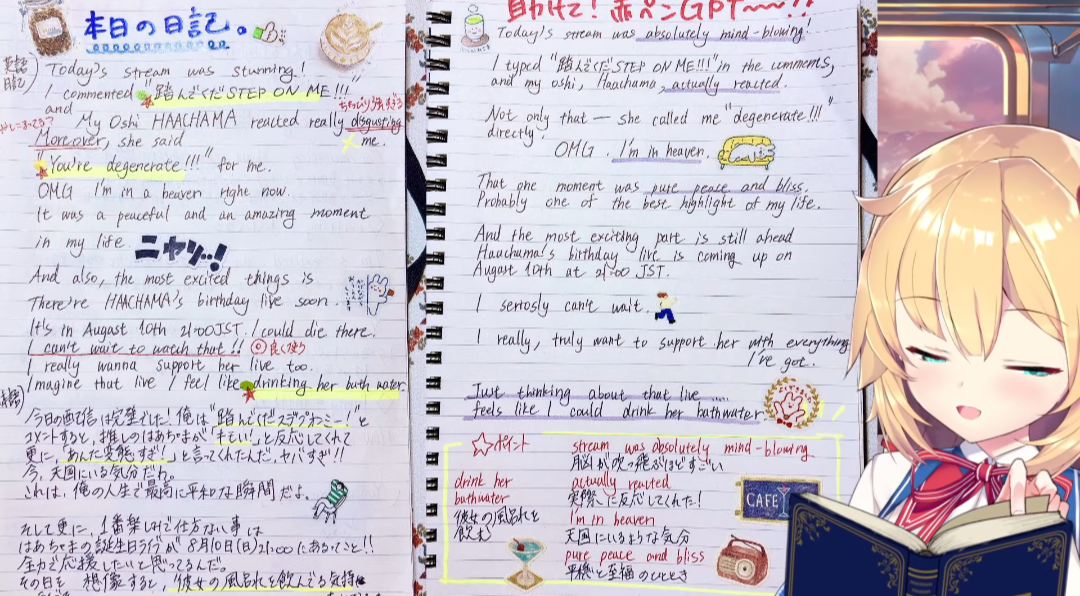 本日の日記。
英語日記
Today's stream was stunning!
I commented "踏んでくださSTEP ON ME!!!"
and
ちょっぴり強すぎる
My Oshi HAACHAMA reacted really disgusting
Moreover, she said me.
"You're degenerate!!!" for me.
OMG I'm in a heaven right now.
It was a peaceful and an amazing moment
in my life.
ニヤッ!
And also, the most excited things is
There're HAACHAMA's birthday live soon.
It's in Augast 10th 21:00JST. I could die there.
I can't wait to watch that!! 良く使う
I really wanna support her live too.
Imagine that live I feel like drinking her bath water.
今日の配信は完璧でした!俺は"踏んでくだステプオンミー!"と
コメントすると、推しのはあちまが「キモい!」と反応してくれて
更に、「あんた変態すぎ!」と言ってくれたんだ、ヤバすぎ!!
今、天国にいる気分だわ。
これは、俺の人生で最高に平和な瞬間だよ。
そして更に、1番楽しみで仕方ない事は
はあちまの誕生日ライブが8月10日(日)21:00にあるってこと!!
全力で応援したいと思ってるんだ。
その日を想像すると、彼女の風呂水を飲んでる気持
助けて!赤ペンGPT〜〜!!
Today's stream was absolutely mind-blowing!
I typed "踏んでくださSTEP ON ME!!!" in the comments,
and my oshi, Haachama, actually reacted.
Not only that — she called me "degenerate!!!"
directly.
OMG. I'm in heaven.
That one moment was pure peace and bliss.
Probably one of the best highlight of my life.
And the most exciting part is still ahead
Haachama's birthday live is coming up on
Augast 10th at 21:00 JST.
I seriosly can't wait.
I really, truly want to support her with everything
I've got.
Just thinking about that live ....
feels like I could drink her bathwater
ポイント
drink her
bathwater
彼女の風呂水を
飲む
stream was absolutely mind-blowing
脳が吹っ飛ぶほどすごい
actually reacted
実際に反応してくれた!
I'm in heaven
天国にいるような気分
pure peace and bliss
平穏と至福のひととき
CAFE